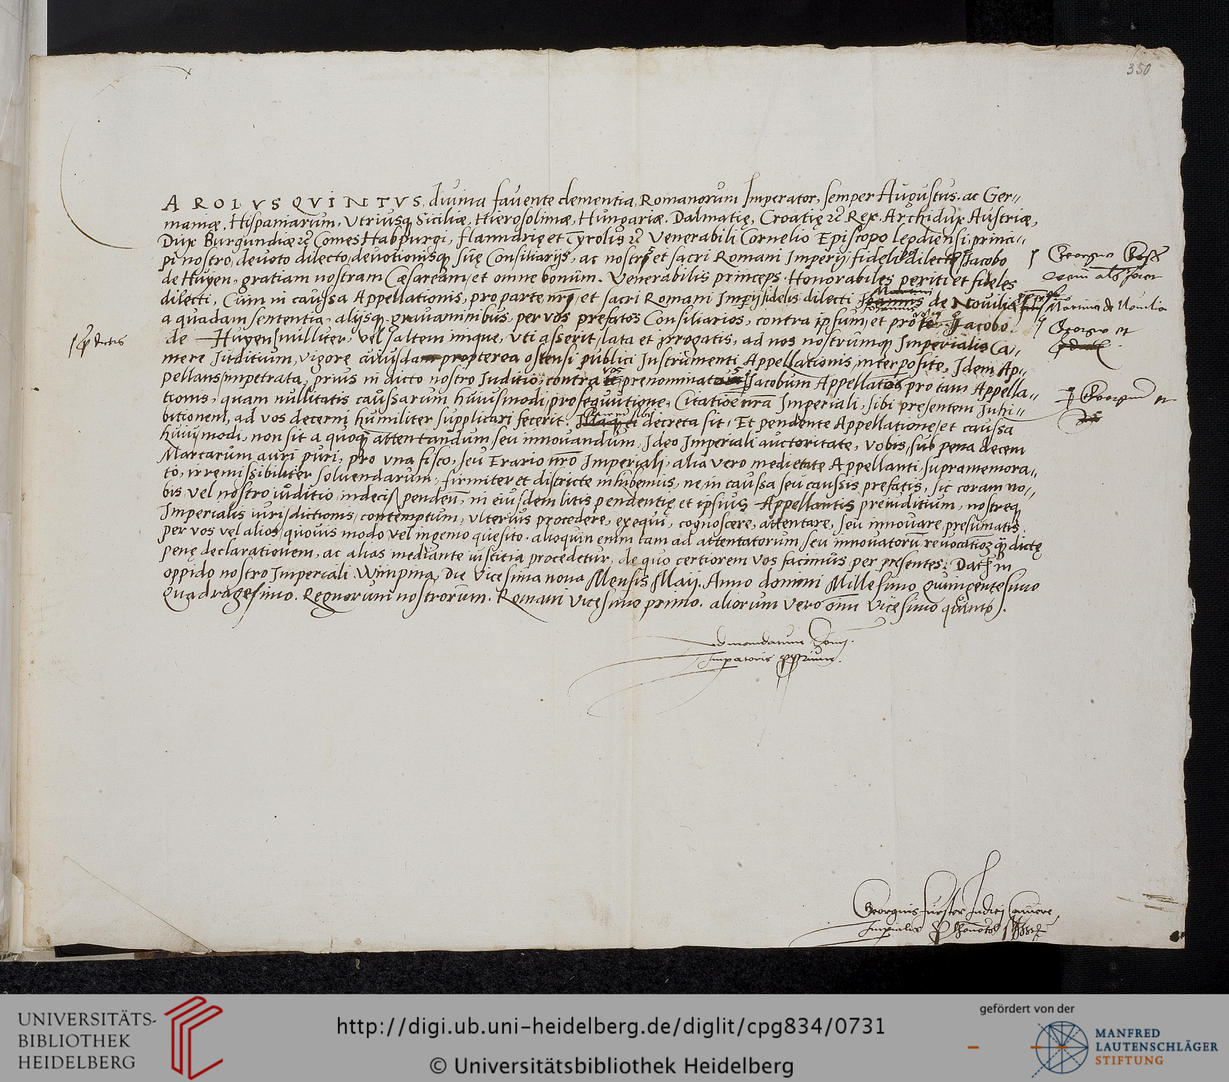 350
AROLVS QVINTVS, diuina fauente clementia, Romanorum Imperator, semper Augustus. ac Ger-
maniæ, Hispaniarum, Vtriusq Siciliæ, Hierosolimæ, Hungariæ, Dalmatię, Croatię &c Rex. Archidux Austriæ,
Dux Burgundiæ &c Comes Habspurgi, flandrię et Tyrolis &c Venerabili Cornelio Episcopo Leodiensi, princi-
pi nostro, deuoto dilecto, deuotionisq suę Consiliarijs, ac nostris et sacri Romani Imperij fidelibus dilectis Jacobo
de Huyen, gratiam nostram Cæsaream, et omne bonum. Venerabilis princeps. Honorabiles periti et fideles
dilecti, Cum in caussa Appellationis, pro parte nri, et sacri Romani Imperij fidelis dilecti de Nouilia
a quadam sententia, alijsq grauaminibus, per vos prefatos Consiliarios, contra ipsum, et pro Jacobo
de Huyen, nulliter, vel saltem inique, vti asserit, lata et irrogatis, ad nos nostrumq Imperialis Ca-
mere Juditium, vigore cuiusdam propterea ostensi publici Instrumenti Appellationis, interposite, Idem Ap-
pellans, impetrata, prius in dicto nostro Juditio, contra prenominatum Jacobum Appellatos, pro tam Appella-
tionis, quam nullitatis caussarum huiusmodi, prosequutione, Citatione nra Imperiali. sibi presentem Inhi-
bitionem, ad vos decerni humiliter supplicari fecerit. decreta sit, Et pendente Appellatione, et caussa
huiusmodi, non sit a quoq attentandum, seu innouandum, Ideo Imperiali auctoritate, vobis, sub pena decem
Marcarum auri puri, pro vna fisco, seu Erario nro Imperiali, alia vero medietate Appellanti supramemora-
to, irremissibiliter soluendarum, firmiter et districte inhibemus, ne in caussa seu caussis prefatis, sic coram no-
bis vel nostro iuditio, indecis, penden, in eiusdem litis pendentię et ipsius Appellantis preiuditium, nostreq
Imperialis iurisdictionis, contemptum, vlterius procedere, exequi, cognoscere, attentare, seu innouare, presumatis
per vos vel alios, quouis modo vel ingenio quesito. alioquin enim tam ad attentatorum seu innouatorū reuocationē, q dictę
penę declarationem, ac alias mediante iustitia procedetur, de quo certiorem vos facimus per presentes. Dat in
oppido nostro Imperiali, Wimpina, Die Vicesima nona Mensis Maij. Anno domini Millesimo quingentesimo
Quadragesimo. Regnorum nostrorum. Romani Vicesimo primo. aliorum vero omniū Vicesimo quinto.
Ad mandatum domini
Imperatoris proprium.
Georgio
Marino de Nouilia
Georgio et
Georgium et
Georgius Judicij Camere
Imperialis
UNIVERSITÄTS-
BIBLIOTHEK
HEIDELBERG
http://digi.ub.uni-heidelberg.de/diglit/cpg834/0731
© Universitätsbibliothek Heidelberg
gefördert von der
MANFRED
LAUTENSCHLÄGER
STIFTUNG